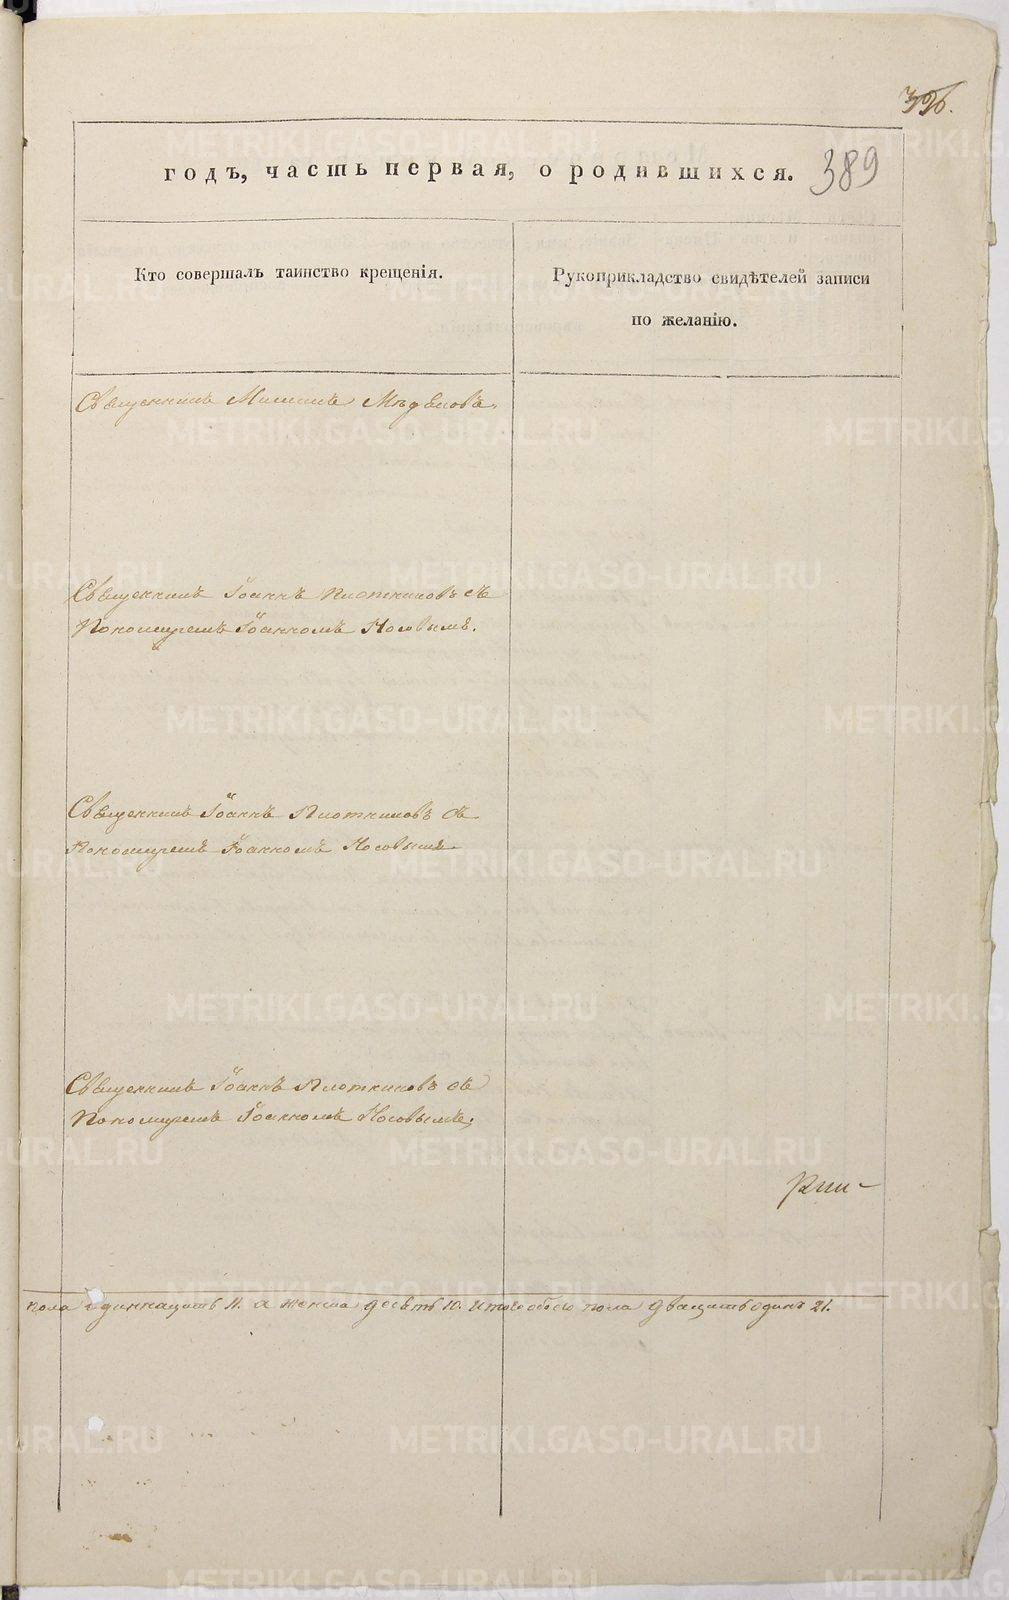 396.
389
годъ, часть первая, о родившихся.
Кто совершалъ таинство крещенія.
Рукоприкладство свидѣтелей записи
по желанію.
Священникъ
Священникъ Іоаннъ Плотниковъ съ
Пономаремъ Іоанномъ Носовымъ.
Священникъ Іоаннъ Плотниковъ съ
Пономаремъ Іоанномъ Носовымъ
Священникъ Іоаннъ Плотниковъ съ
Пономаремъ Іоанномъ Носовымъ.
пола одиннацать 11. а женска десеть 10. Итого обоего пола двацать одинъ 21.
METRIKI.GASO-URAL.RU